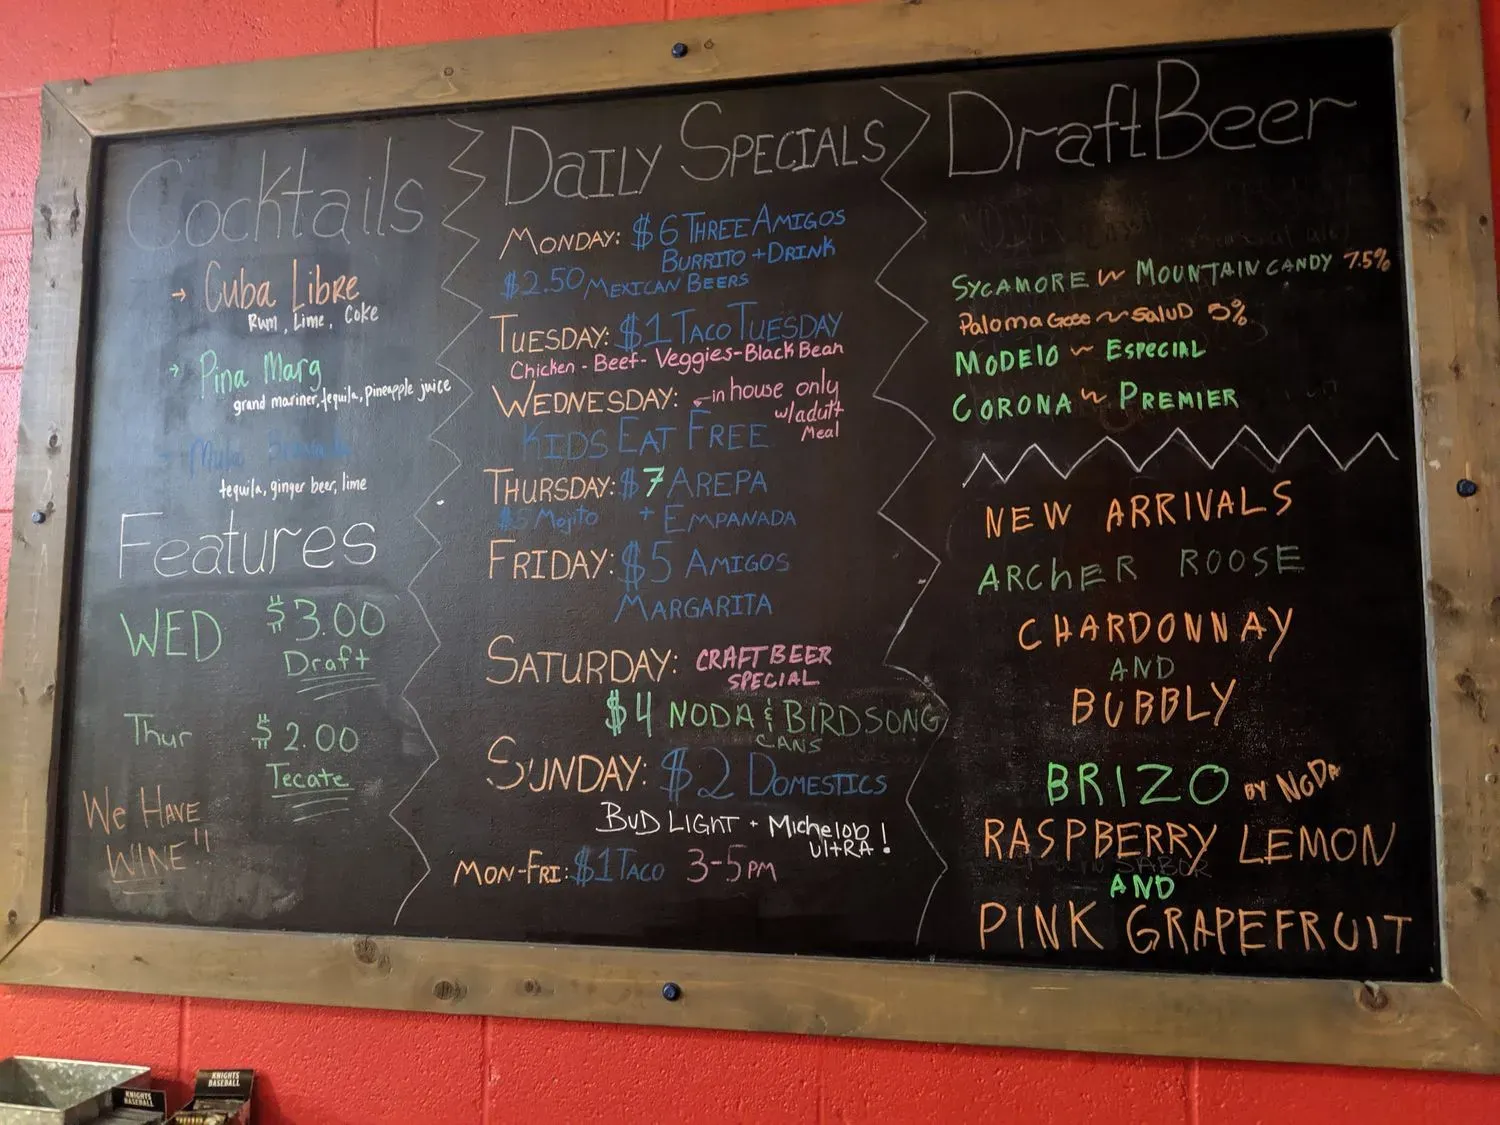 Cocktails
→ Cuba Libre
Rum, Lime, Coke
→ Pina Marg
grand mariner, tequila, pineapple juice
tequila, ginger beer, lime
Features
WED $3.00
Draft
Thur $2.00
Tecate
We HAVE
WINE!!
DAILY SPECIALS
MONDAY: $6 THREE AMIGOS
BURRITO + DRINK
$2.50 MEXICAN BEERS
TUESDAY: $1 TACO TUESDAY
Chicken - Beef - Veggies - Black Bean
WEDNESDAY: ← in house only
w/adult
Meal
KIDS EAT FREE
THURSDAY: $7 AREPA
$5 Mojito + EMPANADA
FRIDAY: $5 AMIGOS
MARGARITA
SATURDAY: CRAFT BEER
SPECIAL
$4 NODA & BIRDSONG
CANS
SUNDAY: $2 DOMESTICS
BUD LIGHT + Michelob
UltRA!
MON-FRI: $1 TACO 3-5 PM
Draft Beer
SYCAMORE ~ MOUNTAIN CANDY 7.5%
Paloma ~ SALUD 5%
MODElO ~ ESPECIAL
CORONA ~ PREMIER
NEW ARRIVALS
ARCHER ROOSE
CHARDONNAY
AND
BUBBLY
BRIZO BY NoDa
RASPBERRY LEMON
AND
PINK GRAPEFRUIT
KNIGHTS
BASEBALL
KNIGHTS
BASEBALL